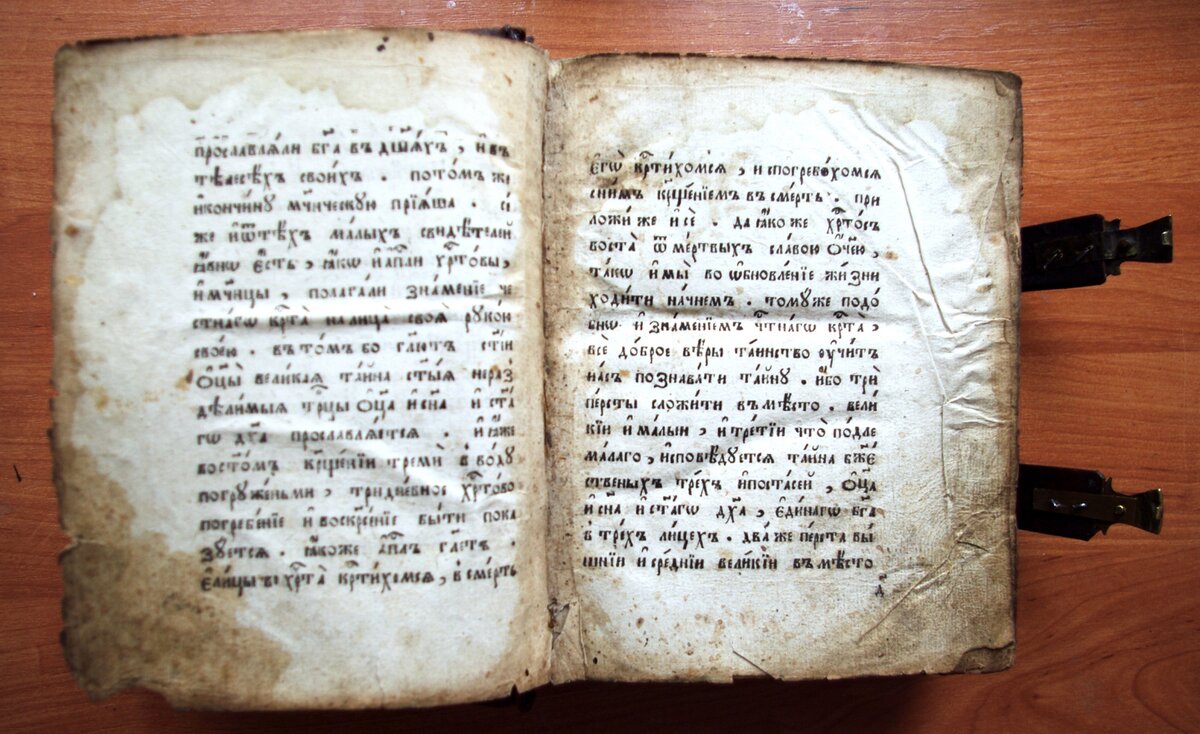 прославлѧли бг҃а въ дш҃ахъ , и҆ въ
тѣлесѣхъ свои́хъ . пото́мъ же
и҆кончи́ну мч҃ническую прїѧ́ша . сі
же и҆ѿтѣ́хъ ма́лыхъ свидѣ́телей
ꙗ҆́вно є҆́сть , ꙗ҆́кѡ и҆ а҆пⷭ҇ли хрⷭ҇то́вы ,
и҆ мч҃нцы , полага́ли зна́менїе че
стна́гѡ крⷭ҇та̀ на лица̀ своѧ̀ руко́й
свое́ю . въ то́мъ бо гл҃ютъ ст҃і́и
ѻ҆ц҃ы̀ вели́каѧ та́йна ст҃ы́ѧ нераз̾
дѣли́мыѧ трⷪ҇цы ѻ҆ц҃а̀ и҆ сн҃а и҆ ст҃а́
гѡ дх҃а прославлѧ́етсѧ . и҆ ꙗ҆́же
во ст҃о́мъ крⷭ҇ще́нїи тремѝ в̾ во́ду
погруже́ньми , тридне́вное хрⷭ҇то́во
погребе́нїе и҆ воскрⷭ҇нїе бы́ти пока
зу́етсѧ . ꙗ҆́коже а҆пⷭ҇лъ гл҃етъ .
є҆ли́цы во хрⷭ҇та̀ крⷭ҇ти́хомсѧ , в̾ сме́рть
є҆гѡ̀ крⷭ҇ти́хомсѧ , и спогребо́хомсѧ
сни́мъ крⷭ҇ще́нїемъ въ сме́рть . при
ложи́ же и҆ сѐ . да ꙗ҆́коже хрⷭ҇то́съ
воста̀ ѿ ме́ртвыхъ сла́вою ѻ҆́ч҃ею ,
та́кѡ и҆ мы̀ во ѡ҆бновле́нїе жи́зни
ходи́ти на́чнемъ . томꙋ́же подо́
бнѡ и҆ зна́менїемъ чⷭ҇тна́гѡ крⷭ҇та̀ ,
всѐ до́брое вѣ́ры та́инство ѹ҆чи́тъ
на́съ познава́ти та́йну . и҆́бо трѝ
персты̀ сложи́ти вꙋмѣ́сто . вели́
кїи и҆ ма́лыи , и҆ тре́тїи что̀ по́дле
ма́лаго , и҆сповѣ́дуетсѧ та́йна бж҃е́
ственыхъ тре́хъ и҆поста́сей , ѻ҆ц҃а̀
и҆ сн҃а и҆ ст҃а́гѡ дх҃а , є҆ди́нагѡ бг҃а
в̾ тре́хъ ли́цехъ . два́ же перста̀ вы́
шнїи и҆ сре́днїи вели́кїи въ мѣ́сто
д҃